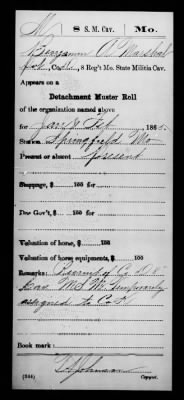 M 8 S. M. Cav. Mo.
Benjamin A. Marshal
Pvt, Co. , 8 Reg't Mo. State Militia Cav.
Appears on a
Detachment Muster Roll
of the organization named above
for Jan & Feb, 1865.
Station Springfield Mo
Present or absent Present
Stoppage, $ 100 for
Due Gov't, $ 100 for
Valuation of horse, $ 100
Valuation of horse equipments, $ 100
Remarks: Co. 8"
Cav M.S.M. temporarily
assigned to Co.
Book mark:
(344) Copyist.